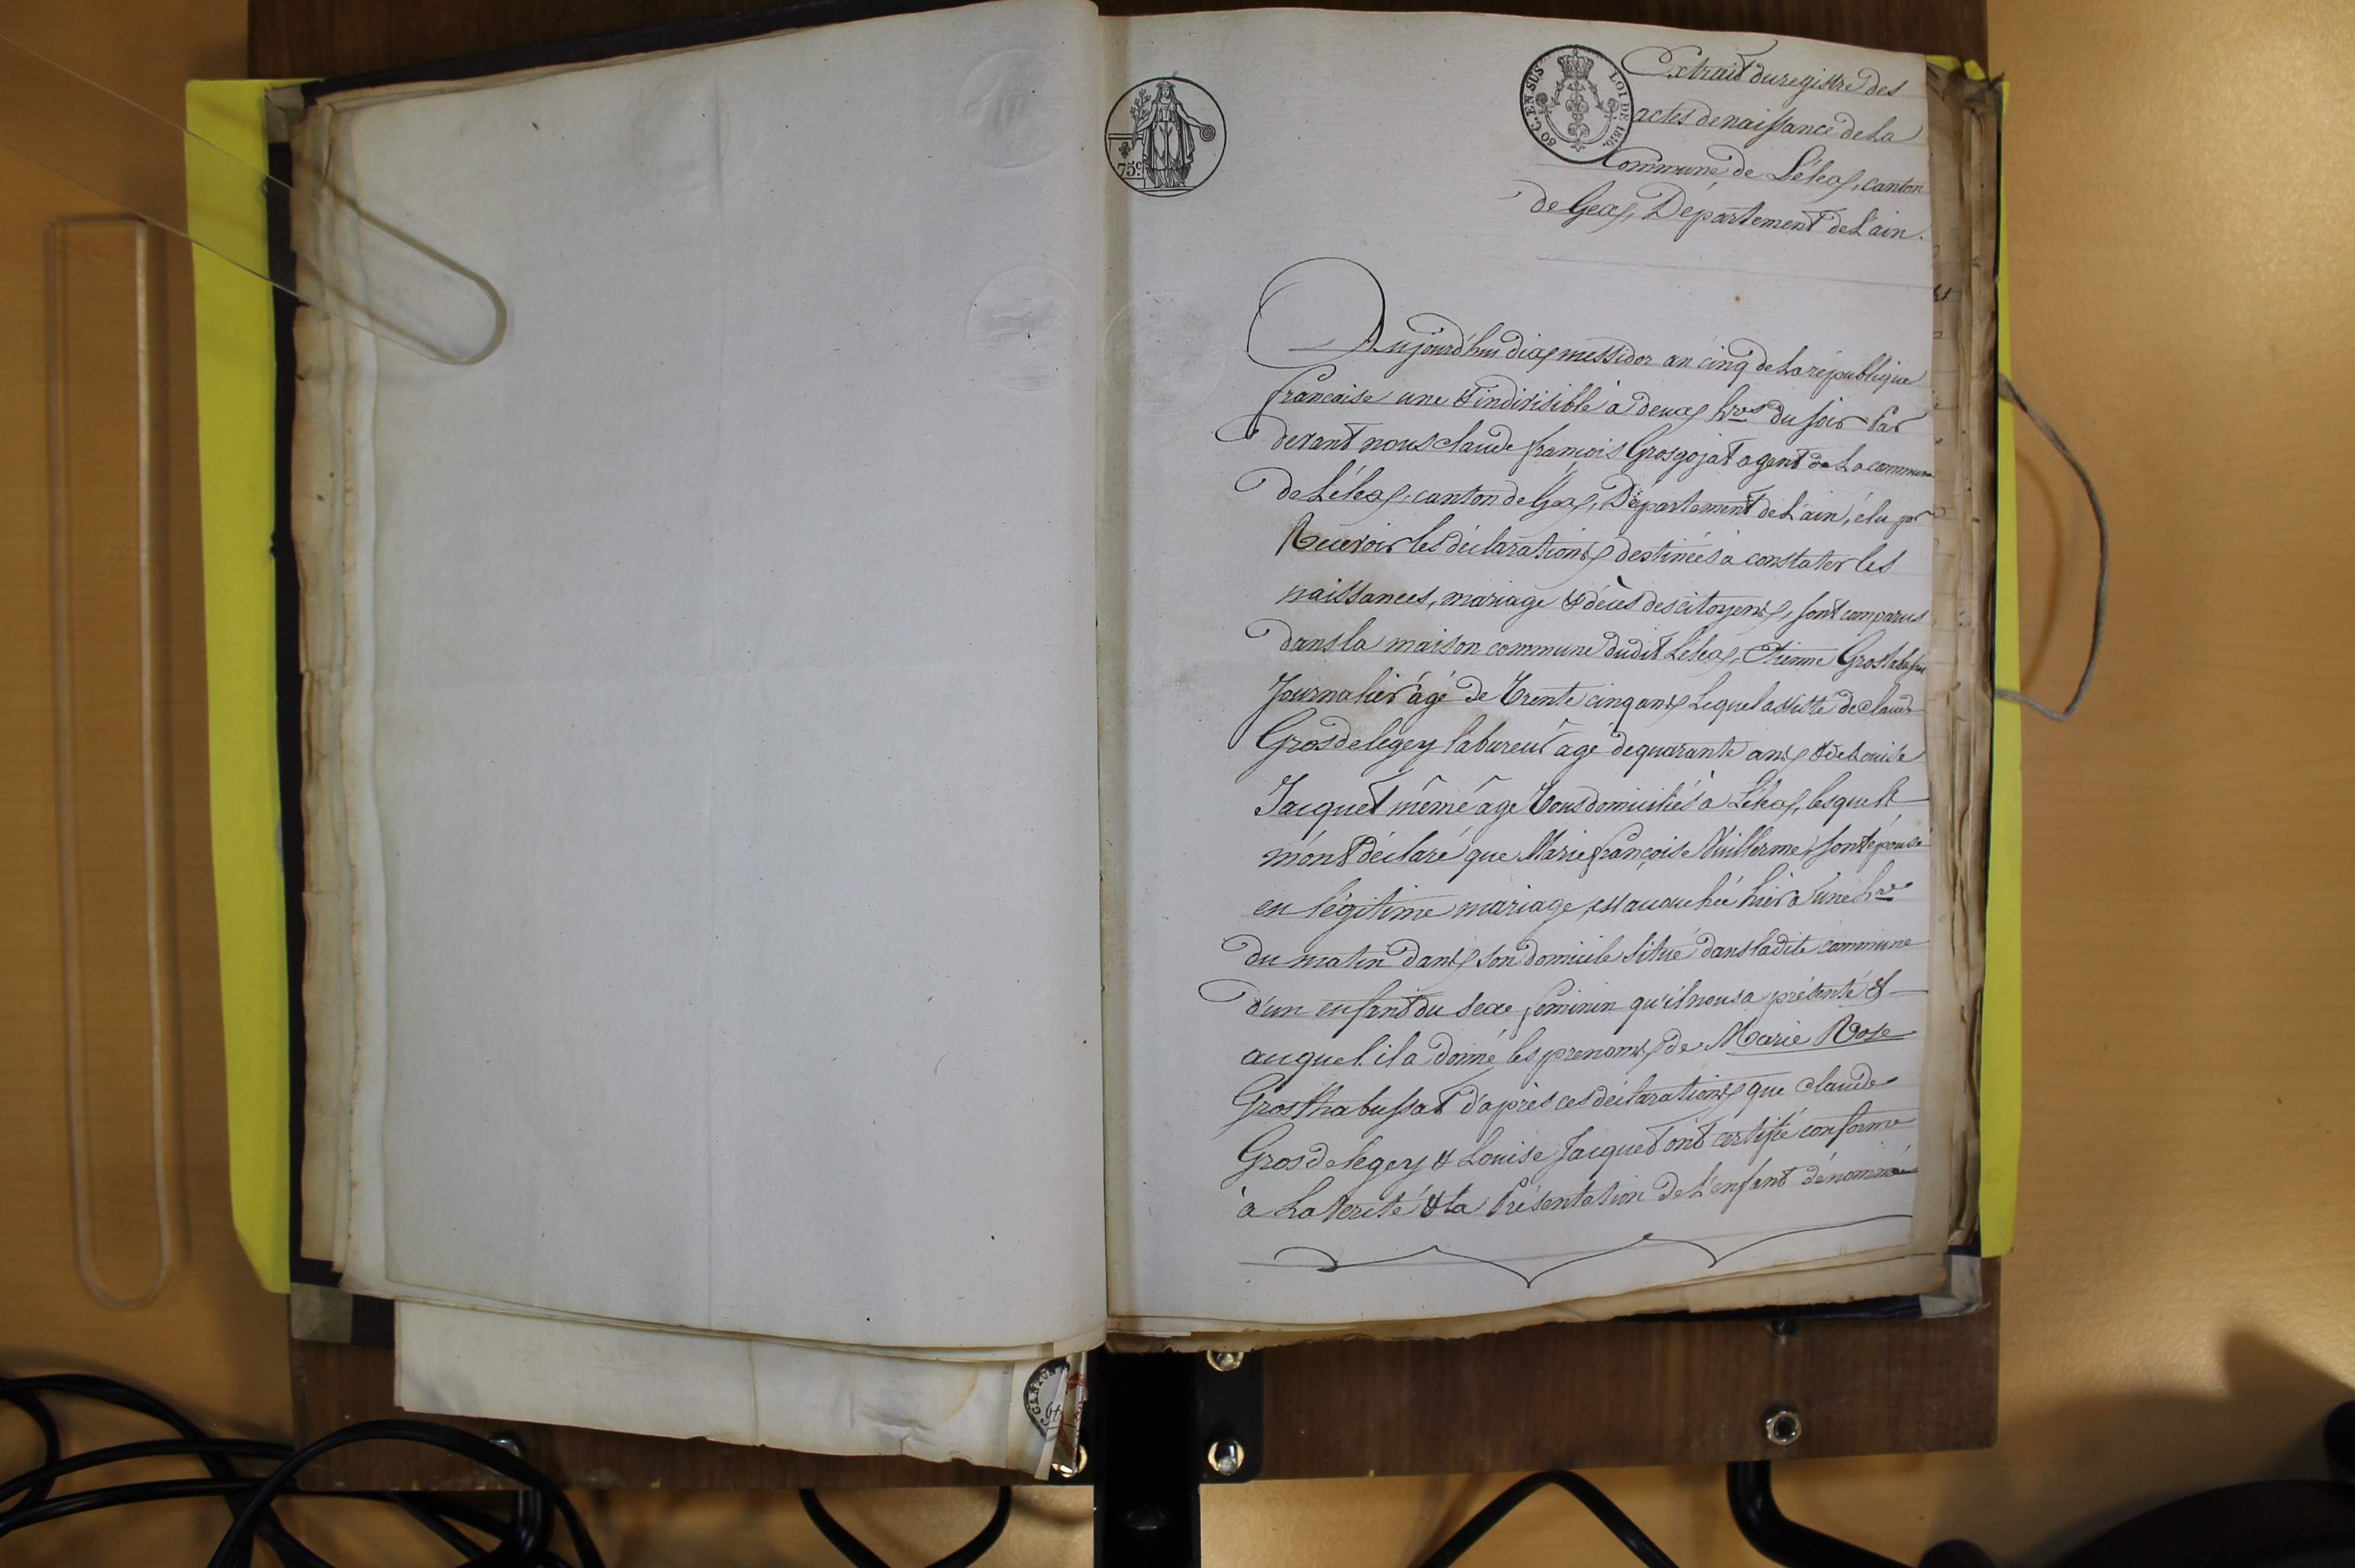 Extrait du registre des
actes de naissance de La
Commune de Lélex, canton
de Gex, Département de L'ain.
75c.
50 C. EN SUS
LOI DE 1816.
Aujourd'hui dix messidor an cinq de La république
francaise une & indivisible à deux hres du soir Par
devant nous claude françois Grosgojat agent de La commune
de Lélex, canton de Gex, Département de L'ain, élu pr
Recevoir les déclarations destinées à constater les
naissances, mariage & décès des citoyens, sont comparus
dans la maison commune dudit Lélex, Etienne
Journalier âgé de Trente cinq ans Lequel assisté de Claude
Grosdelegey laboureur âgé de quarante ans & de Louise
Jacquet même âge Tous domiciliés à Lélex, lesquels
m'ont déclaré que Marie françoise Vuillerme, son épouse
en légitime mariage, est accouchée hier à une hre
du matin dans son domicile situé dans ladite commune
d'un enfant du sexe feminin qu'il nous a présenté &
auquel il a donné les prenoms de Marie Rose
Grosthabussat d'après ces déclarations que claude
Grosdelegey & Louise Jacquet ont certifié conforme
à La Verité & la Présentation de L'enfant dénommé
CANTON